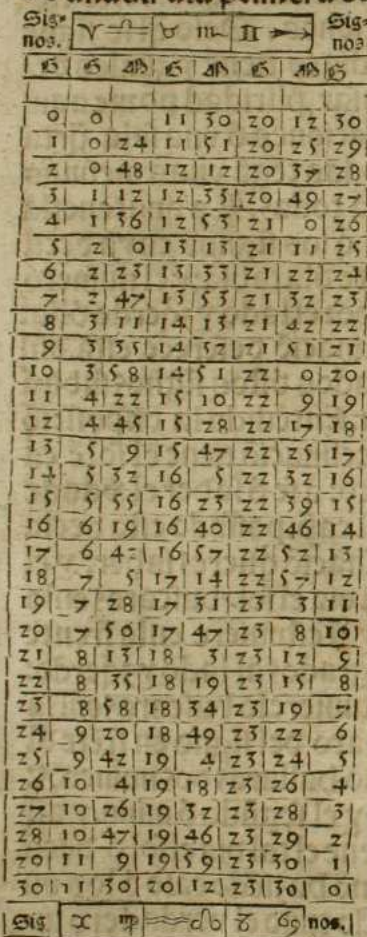 Sig= ♈ ♎ ♉ ♏ ♊ ♐ Sig=
nos. nos
G G M G M G M G
0 0 11 30 20 12 30
1 0 24 11 51 20 25 29
2 0 48 12 12 20 37 28
3 1 12 12 33 20 49 27
4 1 36 12 53 21 0 26
5 2 0 13 13 21 11 25
6 2 23 13 33 21 22 24
7 2 47 13 53 21 32 23
8 3 11 14 13 21 42 22
9 3 35 14 32 21 51 21
10 3 58 14 51 22 0 20
11 4 22 15 10 22 9 19
12 4 45 15 28 22 17 18
13 5 9 15 47 22 25 17
14 5 32 16 5 22 32 16
15 5 55 16 23 22 39 15
16 6 19 16 40 22 46 14
17 6 42 16 57 22 52 13
18 7 5 17 14 22 57 12
19 7 28 17 31 23 3 11
20 7 50 17 47 23 8 10
21 8 13 18 3 23 12 9
22 8 35 18 19 23 15 8
23 8 58 18 34 23 19 7
24 9 20 18 49 23 22 6
25 9 42 19 4 23 24 5
26 10 4 19 18 23 26 4
27 10 26 19 32 23 28 3
28 10 47 19 46 23 29 2
20 11 9 19 59 23 30 1
30 11 30 20 12 23 30 0
Sig ♓ ♍ ♒ ♌ ♑ ♋ nos.